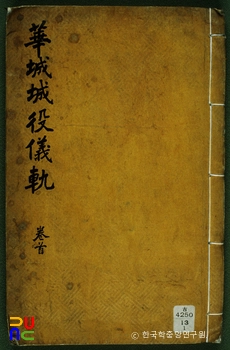 華城城役儀軌
卷首
4250
13
1
© 한국학중앙연구원